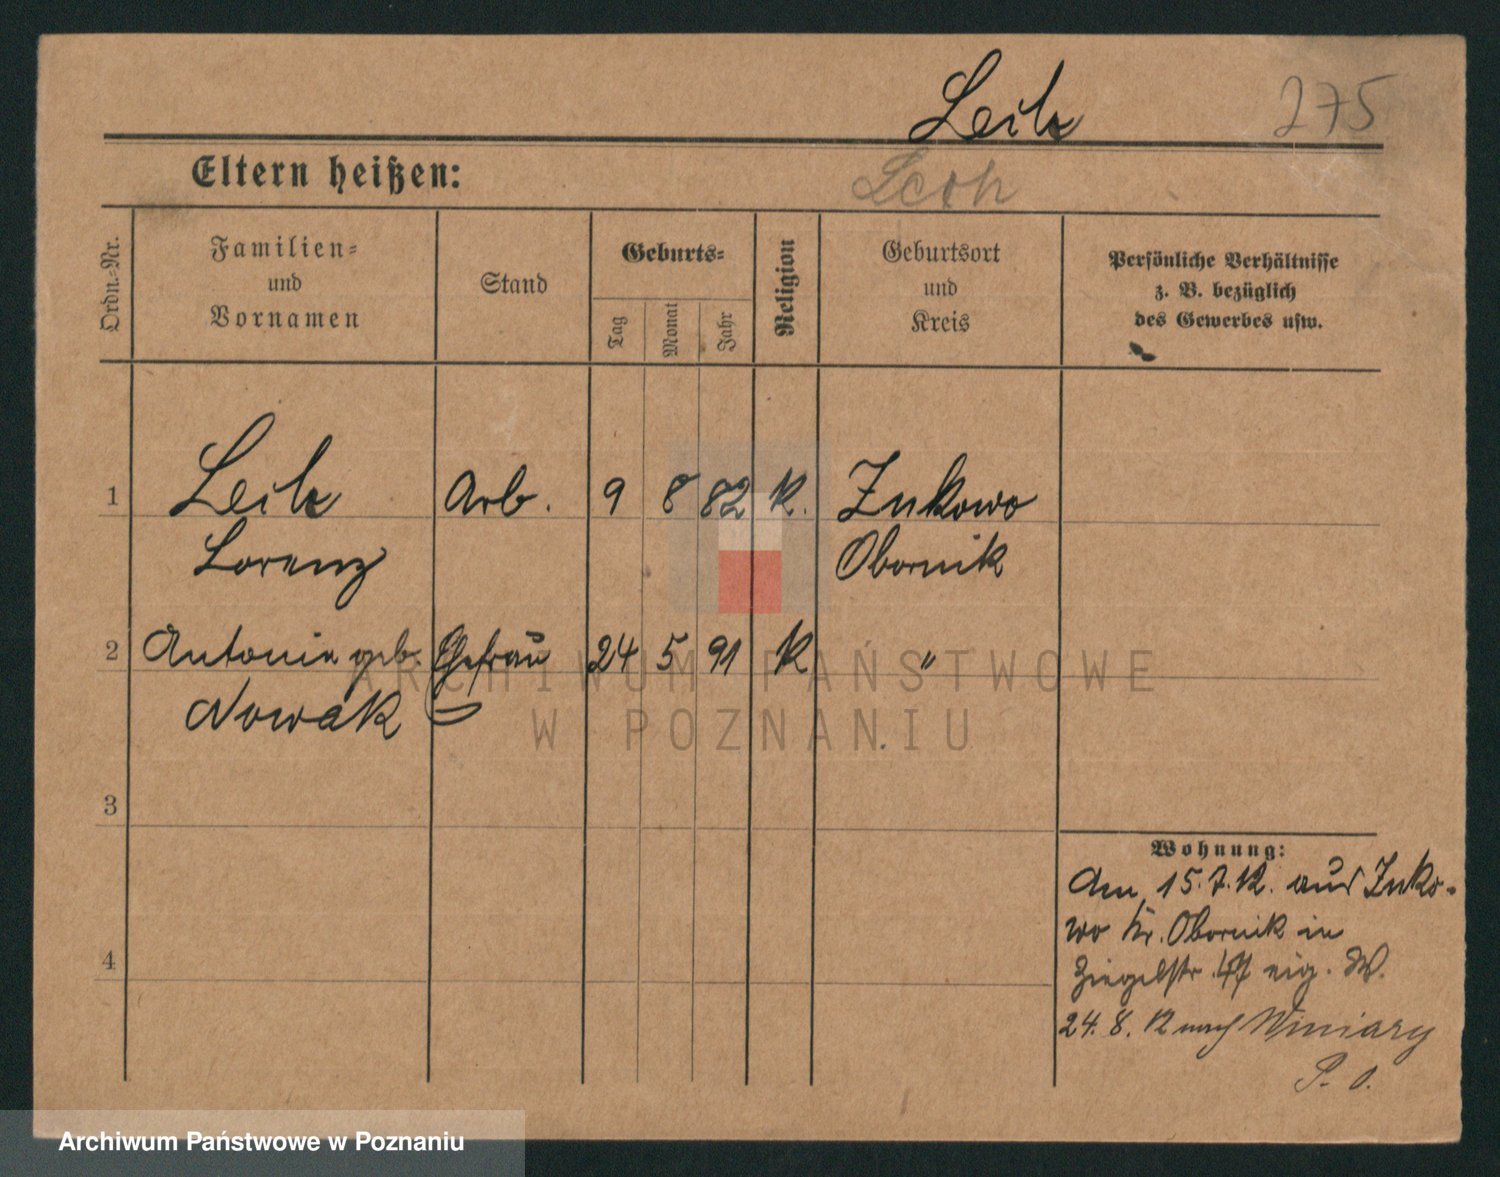 Leik
275
Eltern heißen:
Lech
Ordn.-Nr.
Familien-
und
Vornamen
Stand
Geburts-
Tag
Monat
Jahr
Religion
Geburtsort
und
Kreis
Persönliche Verhältnisse
z. B. bezüglich
des Gewerbes usw.
1 Leik Arb. 9 8 82 K. Zukowo
Lorenz Obornik
2 Antonie geb. Ehefrau 24 5 91 K "
Nowak
3
4
Wohnung:
Am 15.7.12. aus Zuko-
wo Kr. Obornik in
Ziegelstr. eig. W.
24. 8. 12 nach Winiary
P. O.
ARCHIWUM PAŃSTWOWE
W POZNANIU
Archiwum Państwowe w Poznaniu